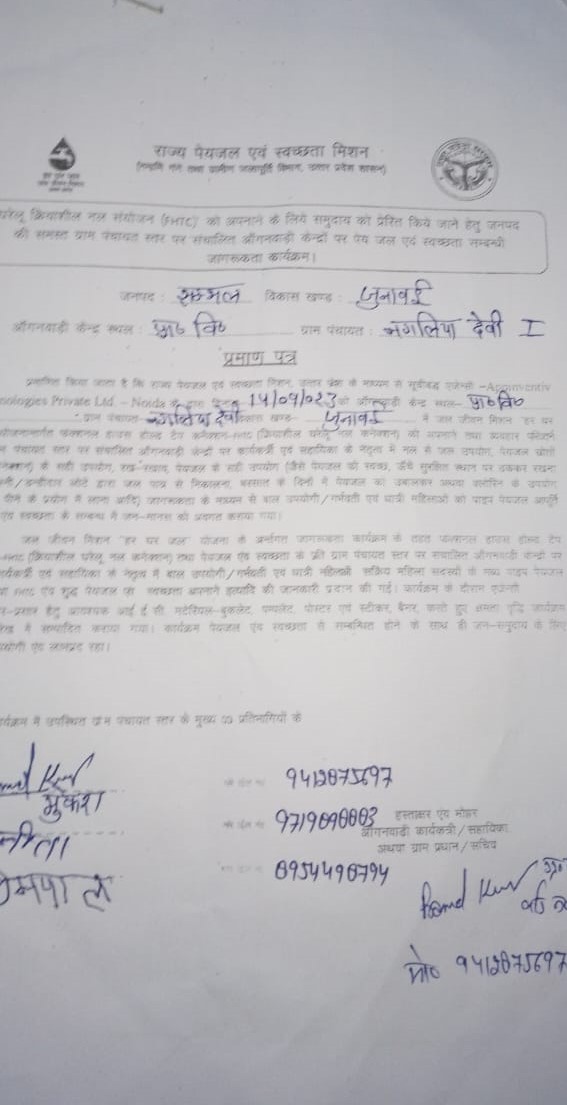 राज्य पेयजल एवं स्वच्छता मिशन
(नमामि गंगे तथा ग्रामीण जलापूर्ति विभाग, उत्तर प्रदेश शासन)
घरेलू क्रियाशील नल संयोजन (FHTC) को अपनाने के लिये समुदाय को प्रेरित किये जाने हेतु जनपद
की समस्त ग्राम पंचायत स्तर पर संचालित आँगनवाड़ी केन्द्रों पर पेय जल एवं स्वच्छता सम्बन्धी
जागरूकता कार्यक्रम।
जनपद : सम्भल विकास खण्ड : जुनावई
आँगनवाड़ी केन्द्र स्थल : प्रा० वि० ग्राम पंचायत : नगलिया देवी I
प्रमाण पत्र
प्रमाणित किया जाता है कि राज्य पेयजल एवं स्वच्छता मिशन, उत्तर प्रदेश के माध्यम से सूचीबद्ध एजेन्सी -Appinventiv
nologies Private Ltd. - Noida के द्वारा दिनांक 14/09/023 को आँगनवाड़ी केन्द्र स्थल- प्रा० वि०
ग्राम पंचायत नगलिया देवी विकास खण्ड- जुनावई में जल जीवन मिशन "हर घर
पंचायत स्तर पर संचालित आँगनवाड़ी केन्द्रों पर कार्यकर्त्री एवं सहायिका के नेतृत्व में नल से जल उपयोग, पेयजल स्रोतों
के सही उपयोग, रख-रखाव, पेयजल के सही उपयोग (जैसे पेयजल को स्वच्छ, ऊँचे सुरक्षित स्थान पर ढककर रखना
डन्डीदार लोटे द्वारा जल पात्र से निकालना, बरसात के दिनों में पेयजल को उबालकर अथवा क्लोरिन के उपयोग
पीने के प्रयोग में लाना आदि) जागरूकता के माध्यम से बाल उपयोगी/गर्भवती एवं धात्री महिलाओं को पाइप पेयजल आपूर्ति
एवं स्वच्छता के सम्बन्ध में जन-मानस को अवगत कराया गया।
जल जीवन मिशन "हर घर जल" योजना के अर्न्तगत जागरूकता कार्यक्रम के तहत फंक्शनल हाउस होल्ड टेप
(क्रियाशील घरेलू नल कनेक्शन) तथा पेयजल एवं स्वच्छता के प्रति ग्राम पंचायत स्तर पर संचालित आँगनवाड़ी केन्द्रों पर
कार्यकर्त्री एवं सहायिका के नेतृत्व में बाल उपयोगी/गर्भवती एवं धात्री महिलाओं सक्रिय महिला सदस्यों के मध्य पाइप पेयजल
एवं शुद्ध पेयजल एवं स्वच्छता अपनाने इत्यादि की जानकारी प्रदान की गई। कार्यक्रम के दौरान एजेन्सी
प्रचार-प्रसार हेतु आवश्यक आई.ई.सी. मटेरियल-बुकलेट, पम्पलेट, पोस्टर एवं स्टीकर, बैनर, करते हुए क्षमता वृद्धि कार्यक्रम
में सम्पादित कराया गया। कार्यक्रम पेयजल एवं स्वच्छता से सम्बन्धित होने के साथ ही जन-समुदाय के लिए
उपयोगी एवं लाभप्रद रहा।
कार्यक्रम में उपस्थित ग्राम पंचायत स्तर के मुख्य 03 प्रतिभागियों के
9412875697
मुकेश
9719898883 हस्ताक्षर एवं मोहर
आँगनवाड़ी कार्यकत्री/सहायिका
अथवा ग्राम प्रधान/सचिव
नीता
प्रेमपाल 8954498794
मो० 9412875697